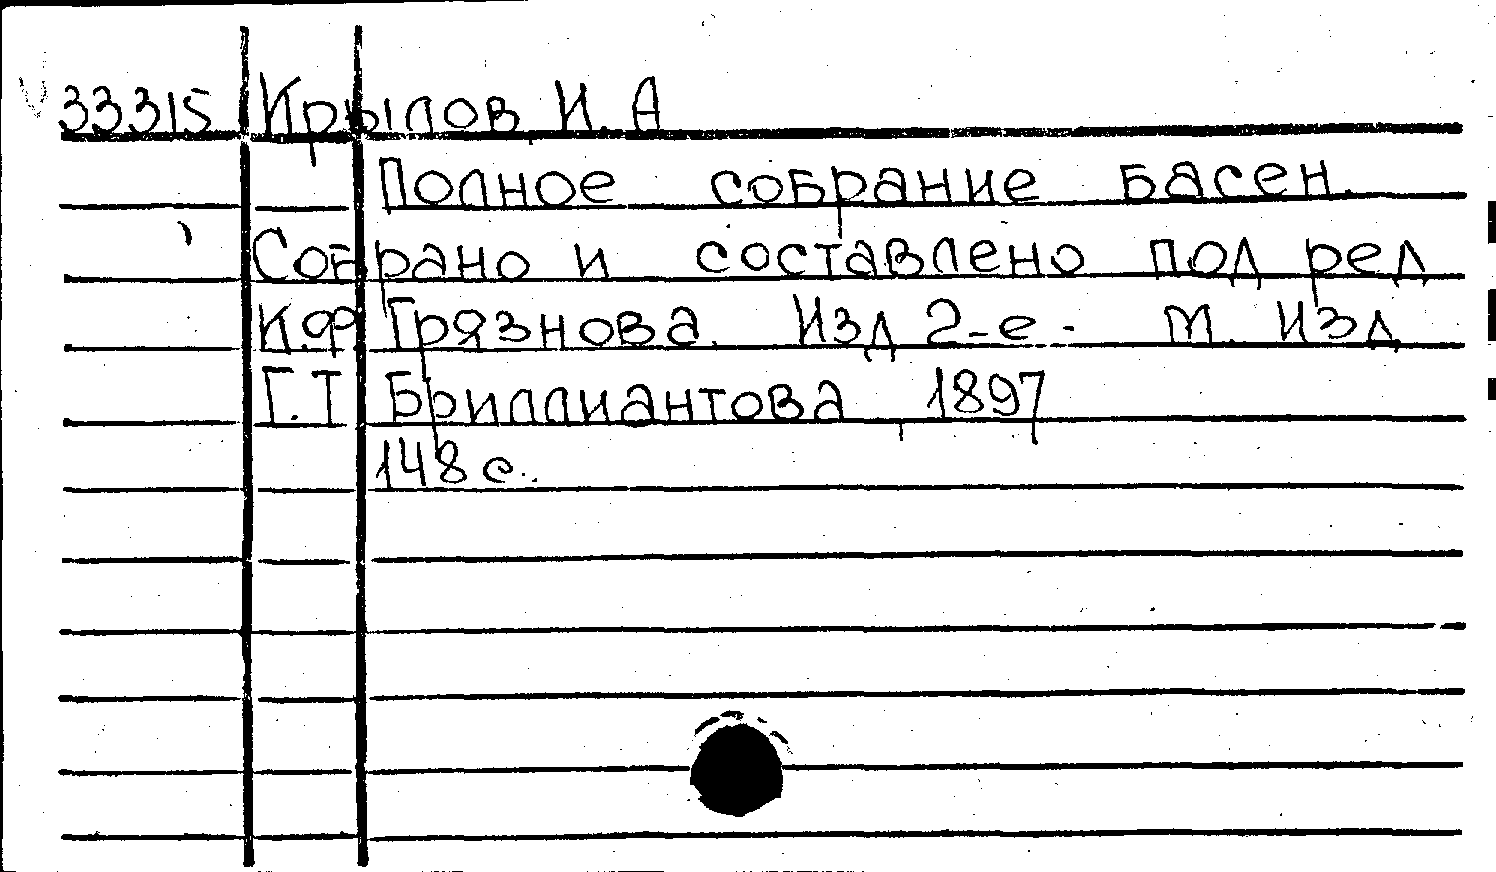 33315 Крылов И. А
Полное собрание басен.
Собрано и составлено под ред
К.Ф Грязнова. Изд 2-е. М. Изд
Г.Т Бриллиантова 1897
148 с.